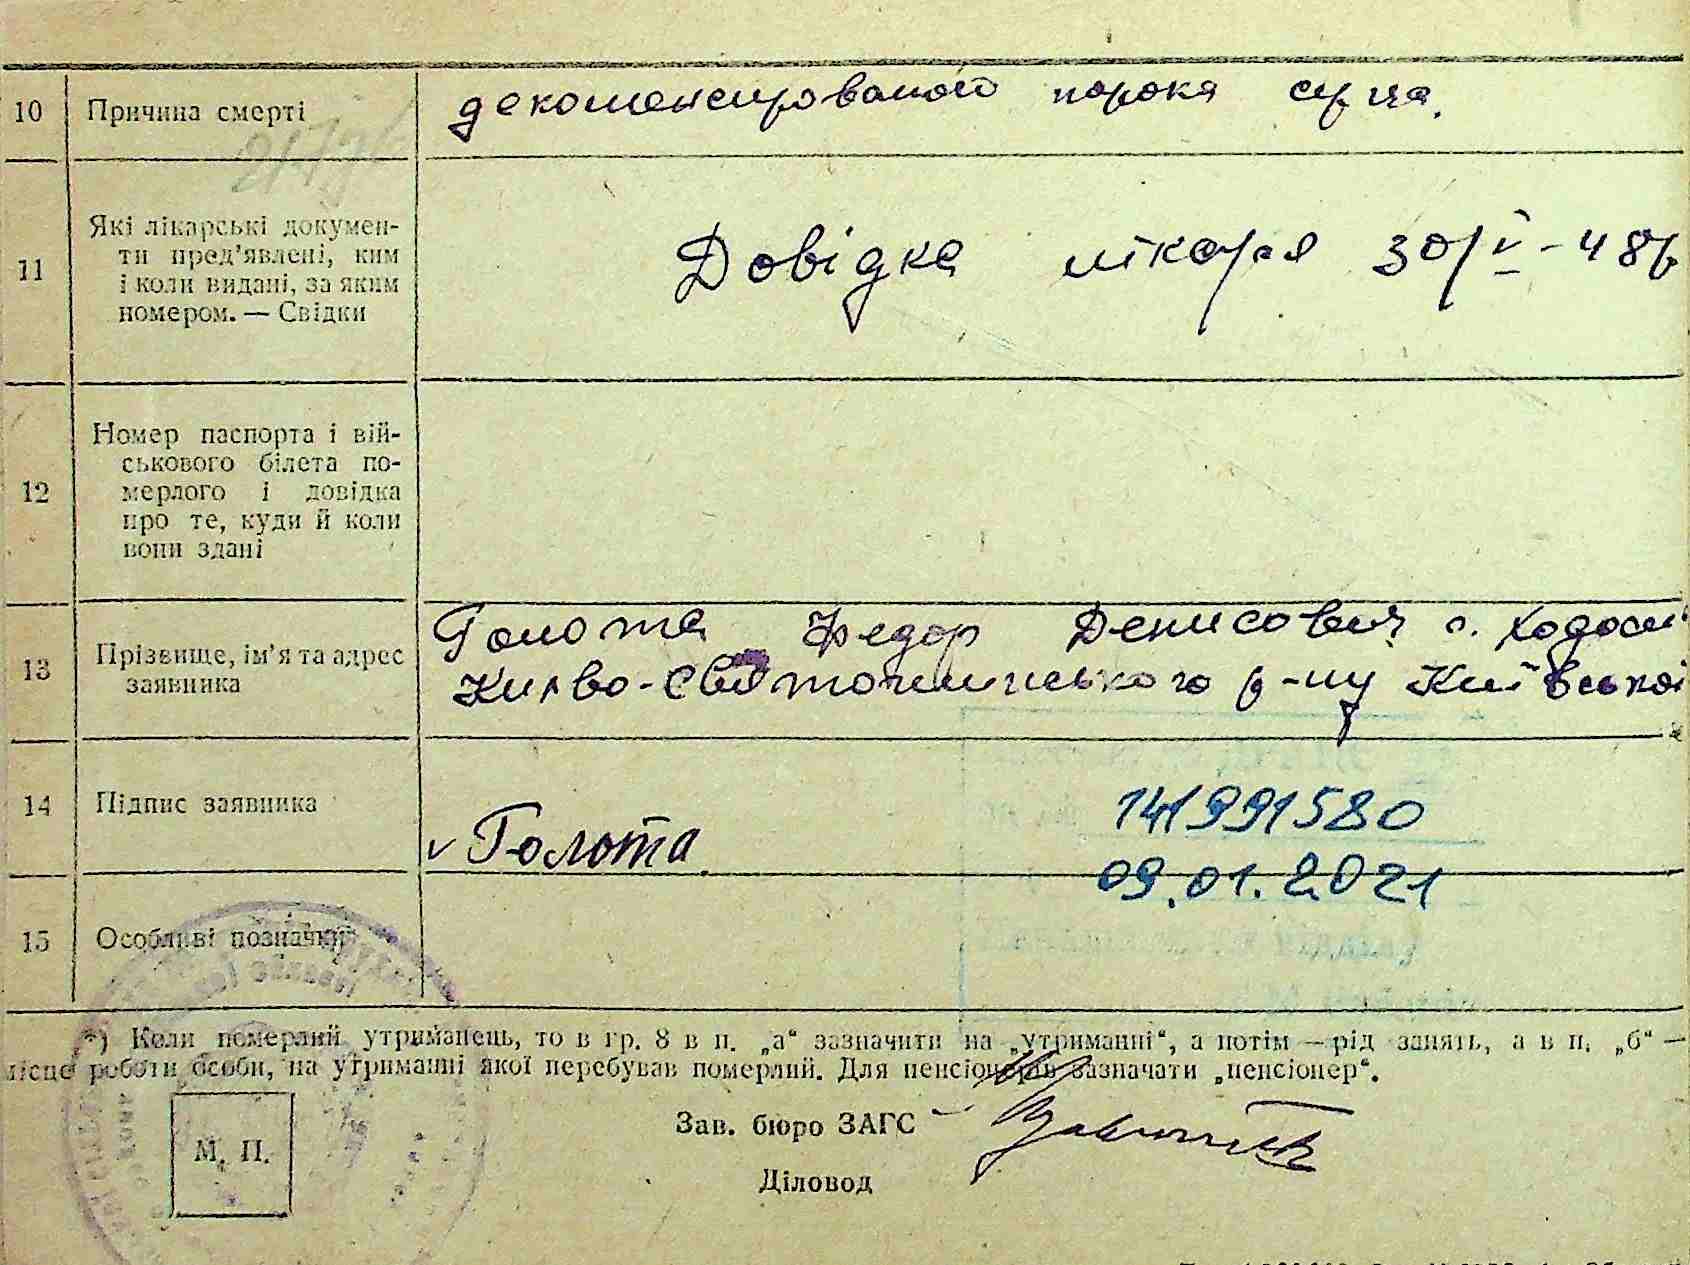 10 Причина смерті декомпенсированого порока серца.
11 Які лікарські докумен-
ти пред'явлені, ким
і коли видані, за яким
номером. — Свідки
Довідка лікаря 30/V-48р
12 Номер паспорта і вій-
ськового білета по-
мерлого і довідка
про те, куди й коли
вони здані
13 Прізвище, ім'я та адрес
заявника
Голота Федор Денисович с. Ходосі
Києво-Святошинського р-ну Київської
14 Підпис заявника
v Голота
141991580
09.01.2021
15 Особливі позначки
*) Коли померлий утриманець, то в гр. 8 в п. „а“ зазначити на „утриманні“, а потім — рід занять, а в п. „б“ —
місце роботи особи, на утриманні якої перебував померлий. Для пенсіонерів зазначати „пенсіонер“.
Зав. бюро ЗАГС
М. П.
Діловод